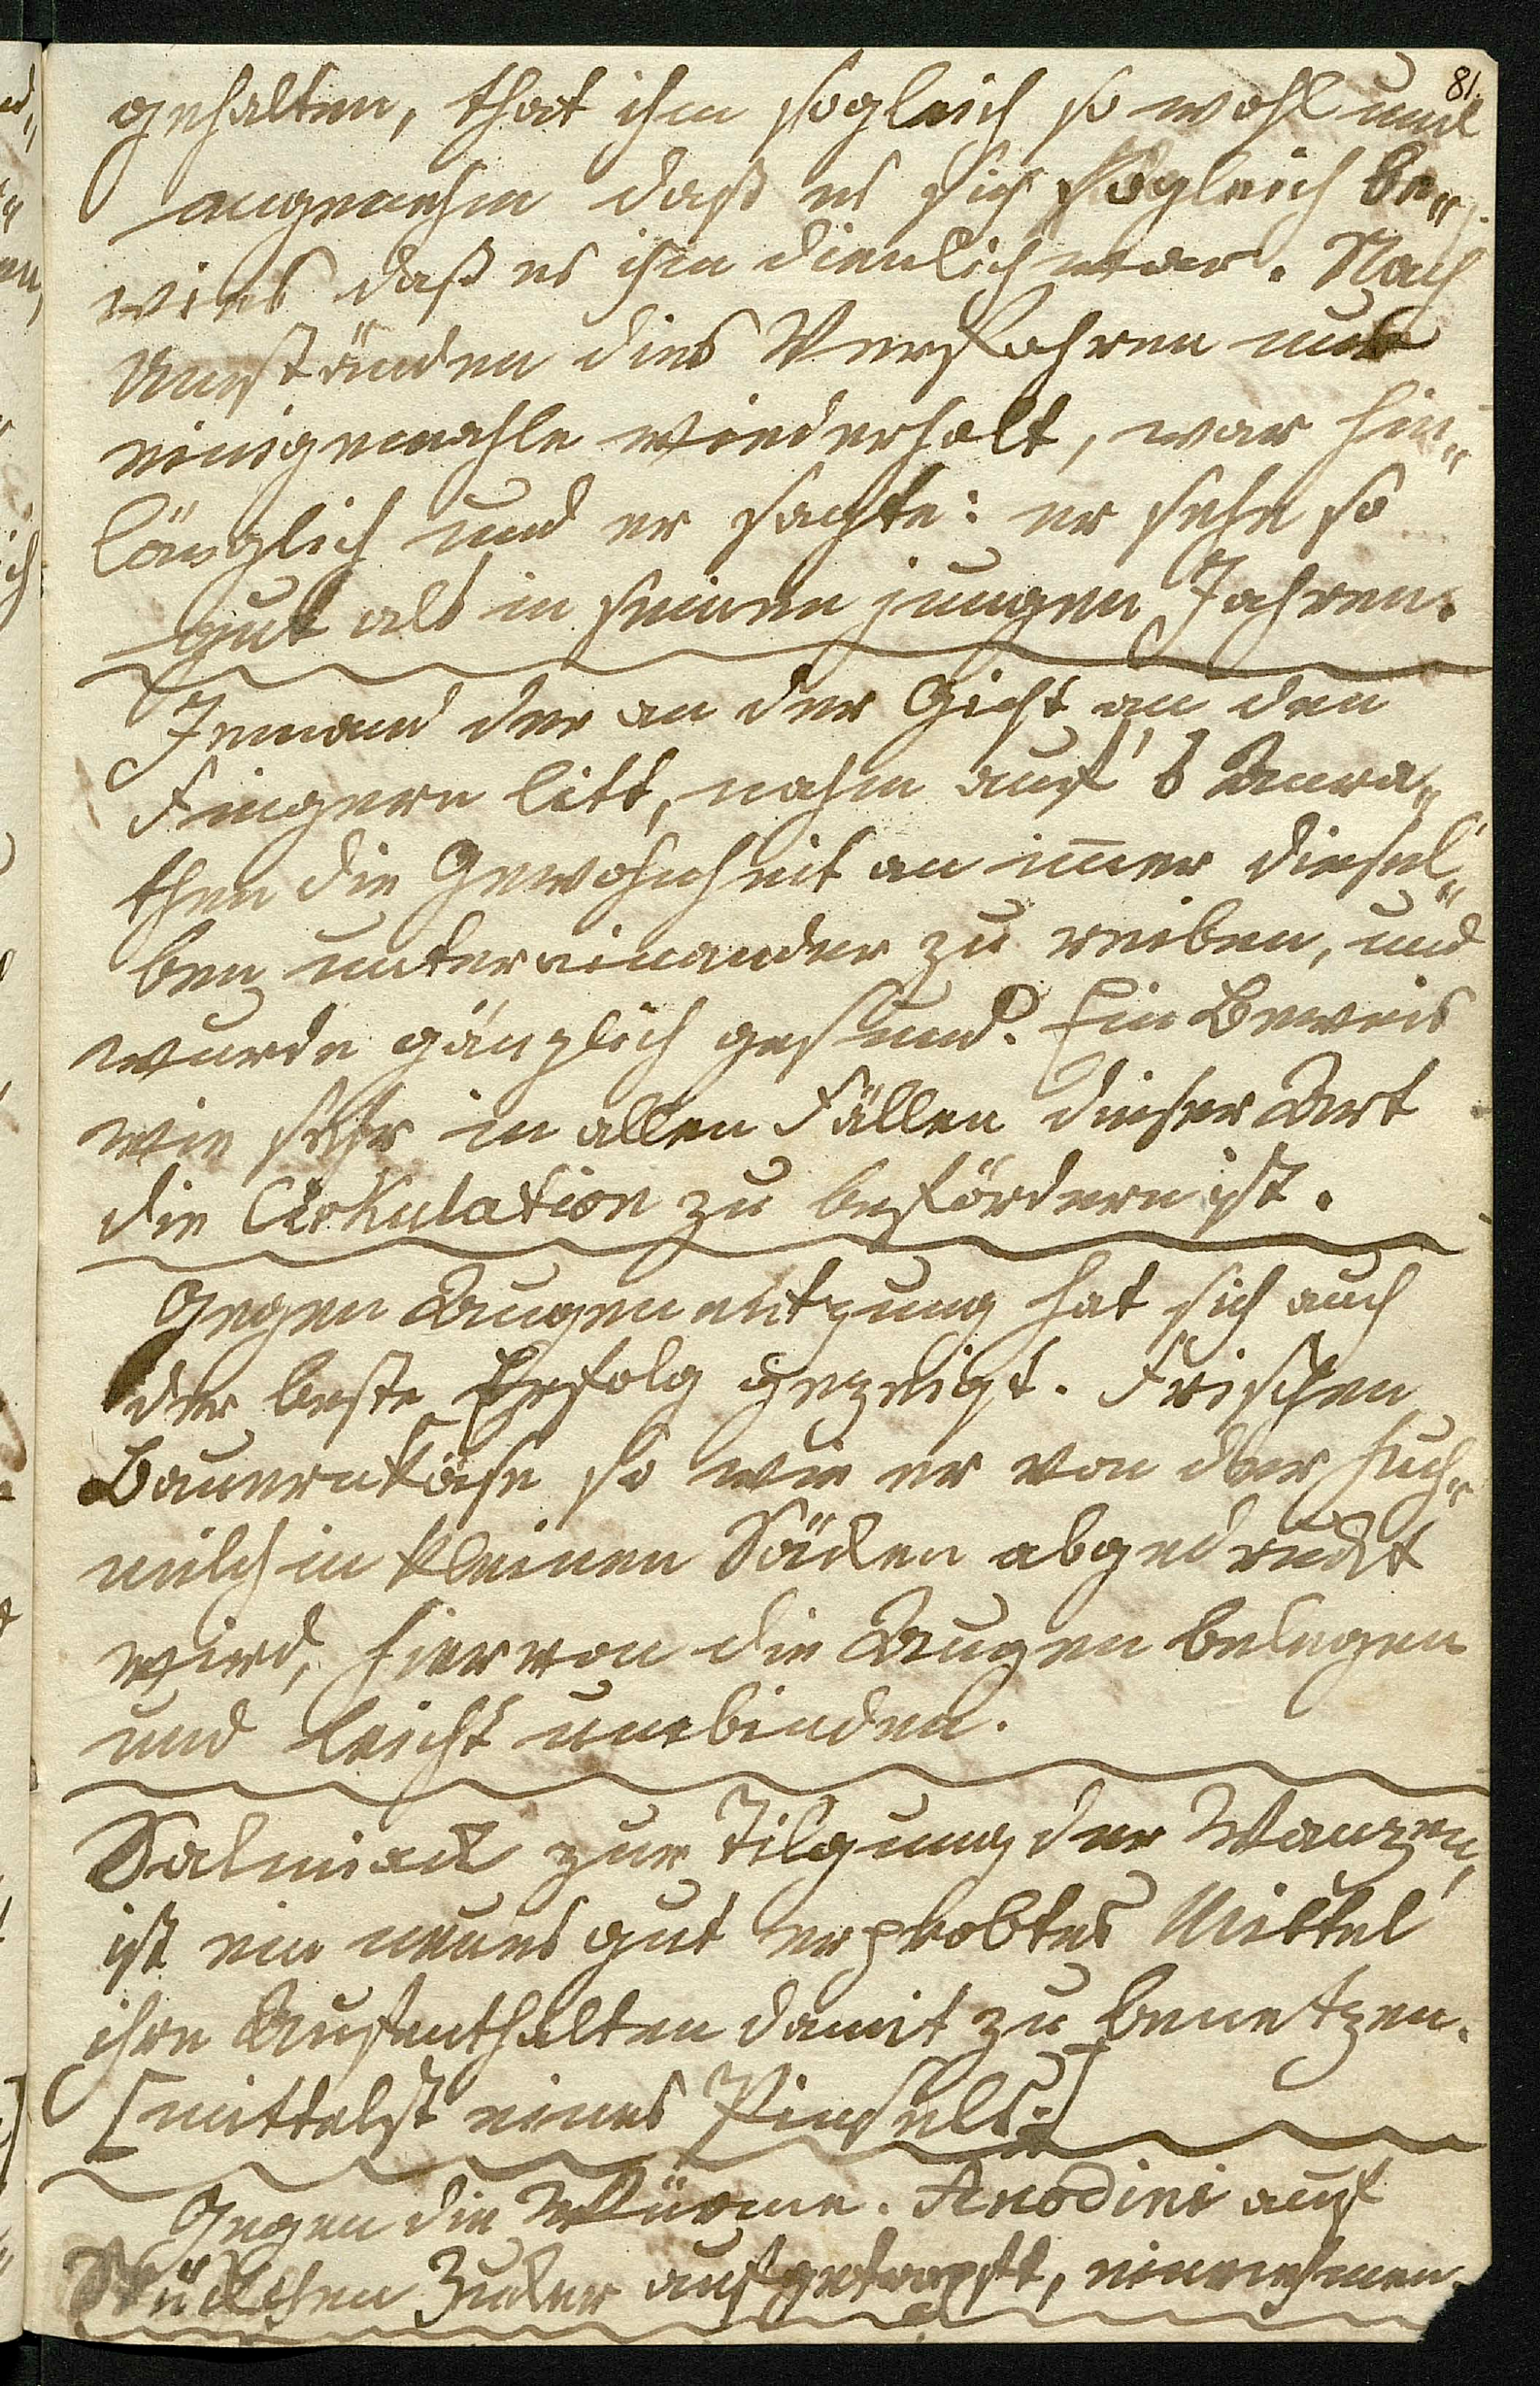 81.
gehalten, that ihm sogleich so wohl und
angenehm daß es sich sogleich be„
wies daß es ihm dienlich war. Nach
Umständen dies Verfahren nur
einigemahle wiederholt, war hin„
länglich und er sagte: er sehe so
gut als in seinen jungen Jahren.
Jemand der an der Gicht an den
Fingern litt, nahm auf's Anra„
then die Gewohnheit an imer diesel„
ben untereinander zu reiben, und
wurde gänzlich gesund. Ein Beweis
wie sehr in allen Fällen dieser Art
die Cirkulation zu befördern ist.
Gegen Augenentzung hat sich auch
der beste Erfolg gezeigt. Frischen
Bauernkäse so wie er von der
milch in kleinen Säcken abgedruckt
wird, hiervon die Augen belegen
und leicht umbinden.
Salmiack zur Tilgung der Wanzen,
ist ein neues gut erprobtes Mittel
ihre Aufenthalten damit zu benetzen.
[mittelst eines Pinsels.]
Gegen die Würme. Anodini auf
Stückchen Zucker aufgetropft, einnehmen.